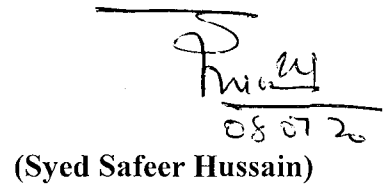 08 07 20
(Syed Safeer Hussain)